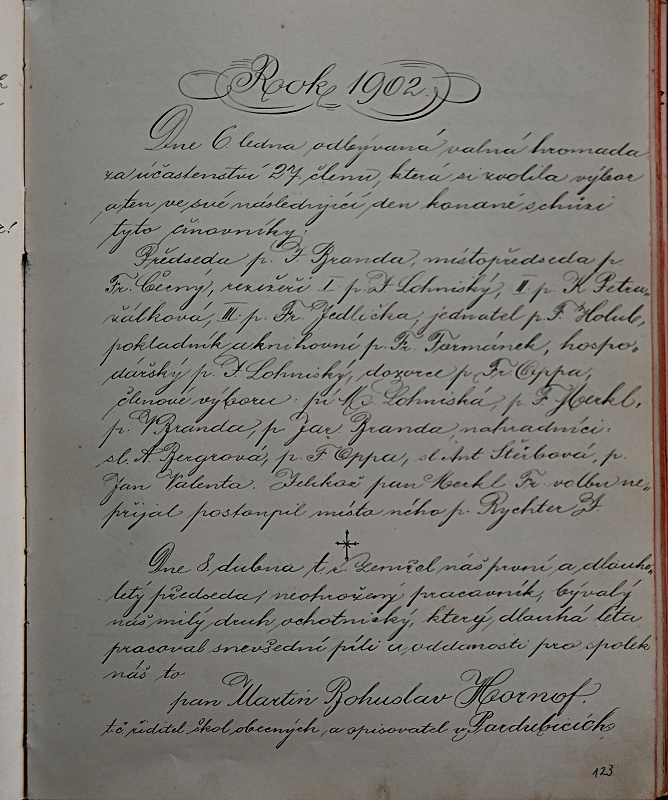 Rok 1902.
Dne 6. ledna odbývaná valná hromada
za účastenství 27 členů, která si zvolila výbor
a ten ve své následující den konané schůzi
tyto činovníky:
Předseda p. F. Branda, místopředseda p.
Fr. Černý, režižéři I. p. F. Lohniský, II. p. K. Petru-
žálková, III. p. Fr. Jedlička, jednatel p. F. Holub,
pokladník a knihovní p. Fr. Furmánek, hospo-
dářský p. F. Lohniský, dozorce p. Fr. Oppa,
členové výboru: pí M. Lohniská, p. F. Merkl,
p. V. Branda, p. Jar. Branda nahradníci:
sl. A. Bergrová, p. F. Oppa, sl. Ant. Štěrbová, p.
Jan Valenta. Jelikož pan Merkl Fr. volbu ne-
přijal postoupil místo něho p. Rychter F.
Dne 8. dubna t. r. zemřel náš první a dlouho-
letý předseda, neohrožený pracovník, bývalý
náš milý druh ochotnický, který dlouhá léta
pracoval s nevšední pílí a oddaností pro spolek
náš to
pan Martin Bohuslav Hornof.
t. č. řiditel škol obecných, a spisovatel v Pardubicích
123